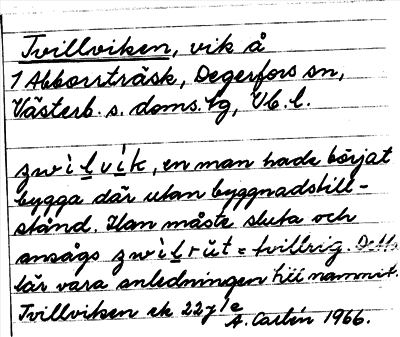 Tvillviken, vik å
1 Abborrträsk, Degerfors sn,
Västerb. s. doms. tg, Vb. l.
zwìlvík, en man hade börjat
bygga där utan byggnadstill-
stånd. Han måste sluta och
ansågs zwìlrüt = tvillrig. Detta
lär vara anledningen till namnet.
Tvillviken ek 22 7 1 e
A. Carlén 1966.